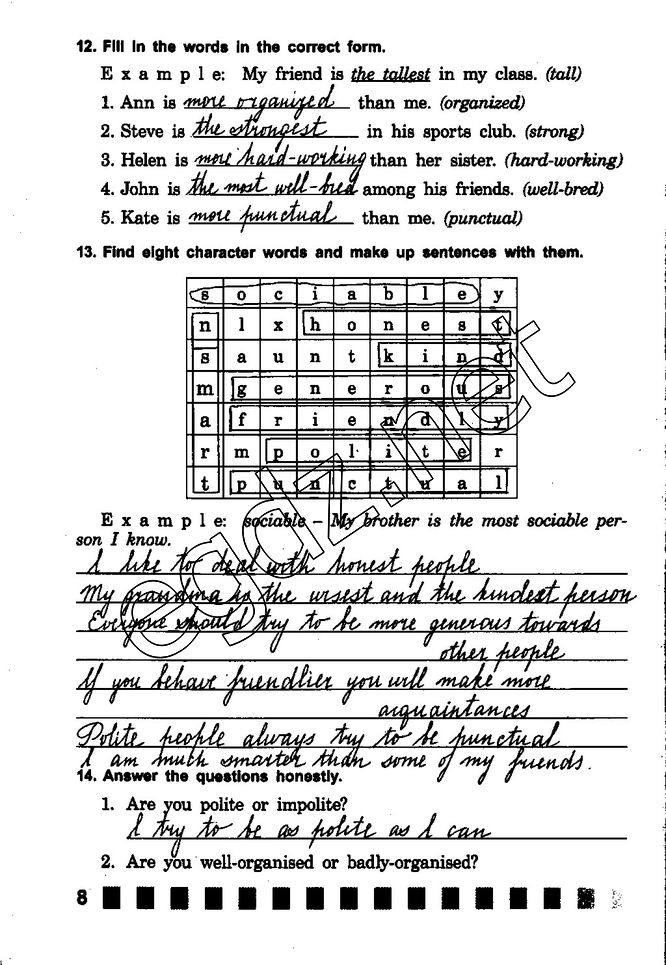 12. Fill in the words in the correct form.
E x a m p l e: My friend is the tallest in my class. (tall)
1. Ann is more organized than me. (organized)
2. Steve is the strongest in his sports club. (strong)
3. Helen is more hard-working than her sister. (hard-working)
4. John is the most well-bred among his friends. (well-bred)
5. Kate is more punctual than me. (punctual)
13. Find eight character words and make up sentences with them.
s o c i a b l e y
n l x h o n e s t
s a u n t k i n d
m g e n e r o u s
a f r i e n d l y
r m p o l i t e r
t p u n c t u a l
E x a m p l e: sociable – My brother is the most sociable per-
son I know.
I like to deal with honest people
My grandma is the wisest and the kindest person
Everyone should try to be more generous towards
other people
If you behave friendlier you will make more
acquaintances
Polite people always try to be punctual
I am much smarter than some of my friends.
14. Answer the questions honestly.
1. Are you polite or impolite?
I try to be as polite as I can
2. Are you well-organised or badly-organised?
8
egdz.net